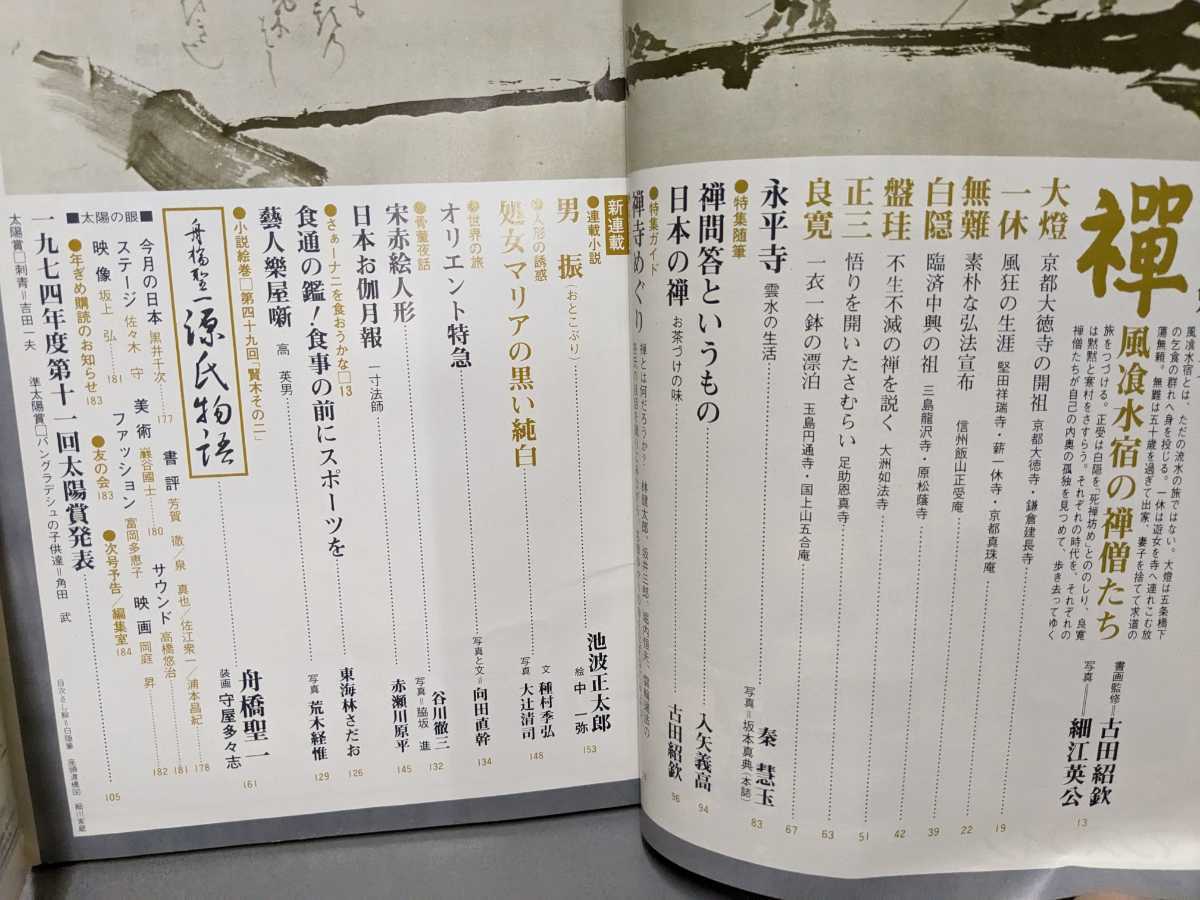 禅
風飡水宿の禅僧たち
書画監修＝古田紹欽
写真＝細江英公
13
風飡水宿とは、ただの流水の旅ではない。大燈は五条橋下
の乞食の群れへ身を投じる。一休は遊女を寺へ連れこむ放
蕩無頼。無難は五十歳を過ぎて出家、妻子を捨てて求道の
旅をつづける。正受は白隠を「死禅坊め」とののしり、良寛
は黙黙と寒村をさすらう。それぞれの時代を、それぞれの
禅僧たちが自己の内奥の孤独を見つめて、歩き去ってゆく
大燈 京都大徳寺の開祖 京都大徳寺・鎌倉建長寺
一休 風狂の生涯 堅田祥瑞寺・薪一休寺・京都真珠庵 19
無難 素朴な弘法宣布 信州飯山正受庵 22
白隠 臨済中興の祖 三島龍沢寺・原松蔭寺 39
盤珪 不生不滅の禅を説く 大洲如法寺 42
正三 悟りを開いたさむらい 足助恩真寺 51
良寛 一衣一鉢の漂泊 玉島円通寺・国上山五合庵 63
67
●特集随筆
永平寺 雲水の生活 秦 慧玉
写真＝坂本真典(本誌) 83
禅問答というもの 入矢義高 94
日本の禅 お茶づけの味 古田紹欽 96
●特集ガイド
禅寺めぐり
新連載
●連載小説
男 振(おとこぶり) 池波正太郎
絵 中 一弥 153
人形の誘惑
処女マリアの黒い純白 文 種村季弘
写真 大辻清司 148
世界の旅
オリエント特急 写真と文＝向田直幹 134
骨董夜話
宋赤絵人形 谷川徹三
写真＝脇坂 進 132
日本お伽月報 一寸法師 赤瀬川原平 145
●さぁーナニを食おうかな□13
食通の鑑！食事の前にスポーツを 東海林さだお 126
藝人樂屋噺 高 英男 写真＝荒木経惟 129
●小説絵巻□第四十九回「賢木その二」
舟橋聖一 源氏物語 舟橋聖一
装画 守屋多々志 161
■太陽の眼■
今月の日本 黒井千次 177
書評 芳賀 徹／泉 真也／佐江衆一／浦本昌紀 178
ステージ 佐々木 守
美術 巖谷國士 180
サウンド 高橋悠治 181
映像 坂上 弘 181
ファッション 富岡多恵子
映画 岡庭 昇 182
●年ぎめ購読のお知らせ 183
●友の会 183
●次号予告／編集室 184
一九七四年度第十一回太陽賞発表 105
太陽賞□刺青＝吉田一夫 準太陽賞□バングラデシュの子供達＝角田 武